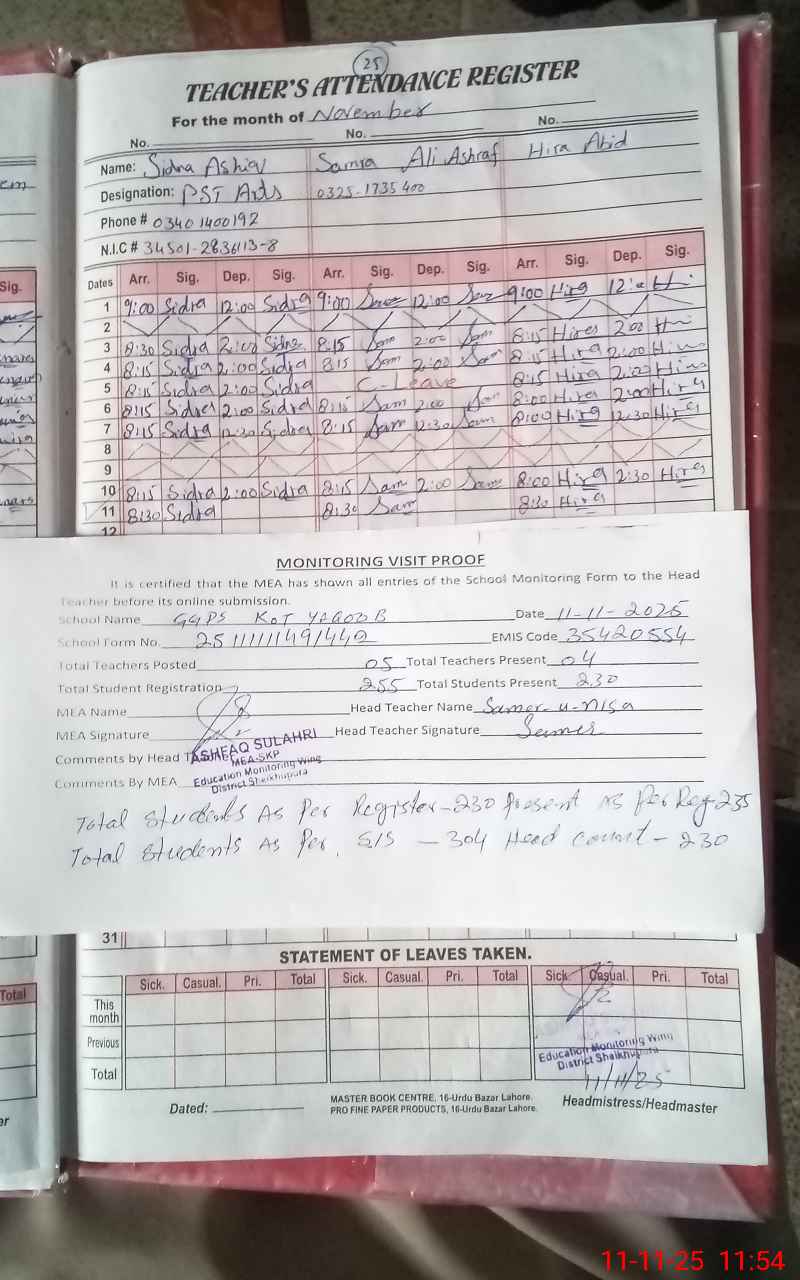 25
TEACHER'S ATTENDANCE REGISTER
For the month of November
No. No. No.
Name: Sidra Ashiq Samra Ali Ashraf Hira Abid
Designation: PST Arts 0325-1735400
Phone # 03401400192
N.I.C # 34501-2836113-8
Dates Arr. Sig. Dep. Sig. Arr. Sig. Dep. Sig. Arr. Sig. Dep. Sig.
1 9:00 Sidra 12:00 Sidra 9:00 Sam 12:00 Sam 9:00 Hira
2
3 8:30 Sidra 2:00 Sidra 8:15 Sam 2:00 Sam 8:15 Hira 2:00
4 8:15 Sidra 2:00 Sidra 8:15 Sam 2:00 Sam 8:15 Hira 2:00 Hira
5 8:15 Sidra 2:00 Sidra C-Leave 8:15 Hira 2:00 Hira
6 8:15 Sidra 2:00 Sidra 8:15 Sam 2:00 Sam 8:00 Hira 2:00 Hira
7 8:15 Sidra 12:30 Sidra 8:15 Sam 12:30 Sam 8:00 Hira 12:30 Hira
8
9
10 8:15 Sidra 2:00 Sidra 8:15 Sam 2:00 Sam 8:00 Hira 2:30 Hira
11 8:30 Sidra 8:30 Sam 8:30 Hira
12
MONITORING VISIT PROOF
It is certified that the MEA has shown all entries of the School Monitoring Form to the Head
Teacher before its online submission.
School Name GGPS KOT YAQOOB Date 11-11-2025
School Form No. EMIS Code 35420554
Total Teachers Posted 05 Total Teachers Present 04
Total Student Registration 255 Total Students Present 230
MEA Name Head Teacher Name Samer-u-nisa
MEA Signature Head Teacher Signature Samer
Comments by Head
ASHFAQ SULAHRI
MEA-SKP
Education Monitoring Wing
District Sheikhupura
Comments By MEA
Total Students As Per Register-230 present As Per Reg-235
Total Students As Per SIS - 304 Head Count - 230
31
STATEMENT OF LEAVES TAKEN.
Sick. Casual. Pri. Total Sick. Casual. Pri. Total Sick. Casual. Pri. Total
This month
Previous
Total
Education Monitoring Wing
District Sheikhupura
11/11/25
Dated: MASTER BOOK CENTRE, 16-Urdu Bazar Lahore.
PRO FINE PAPER PRODUCTS, 16-Urdu Bazar Lahore. Headmistress/Headmaster
11-11-25 11:54